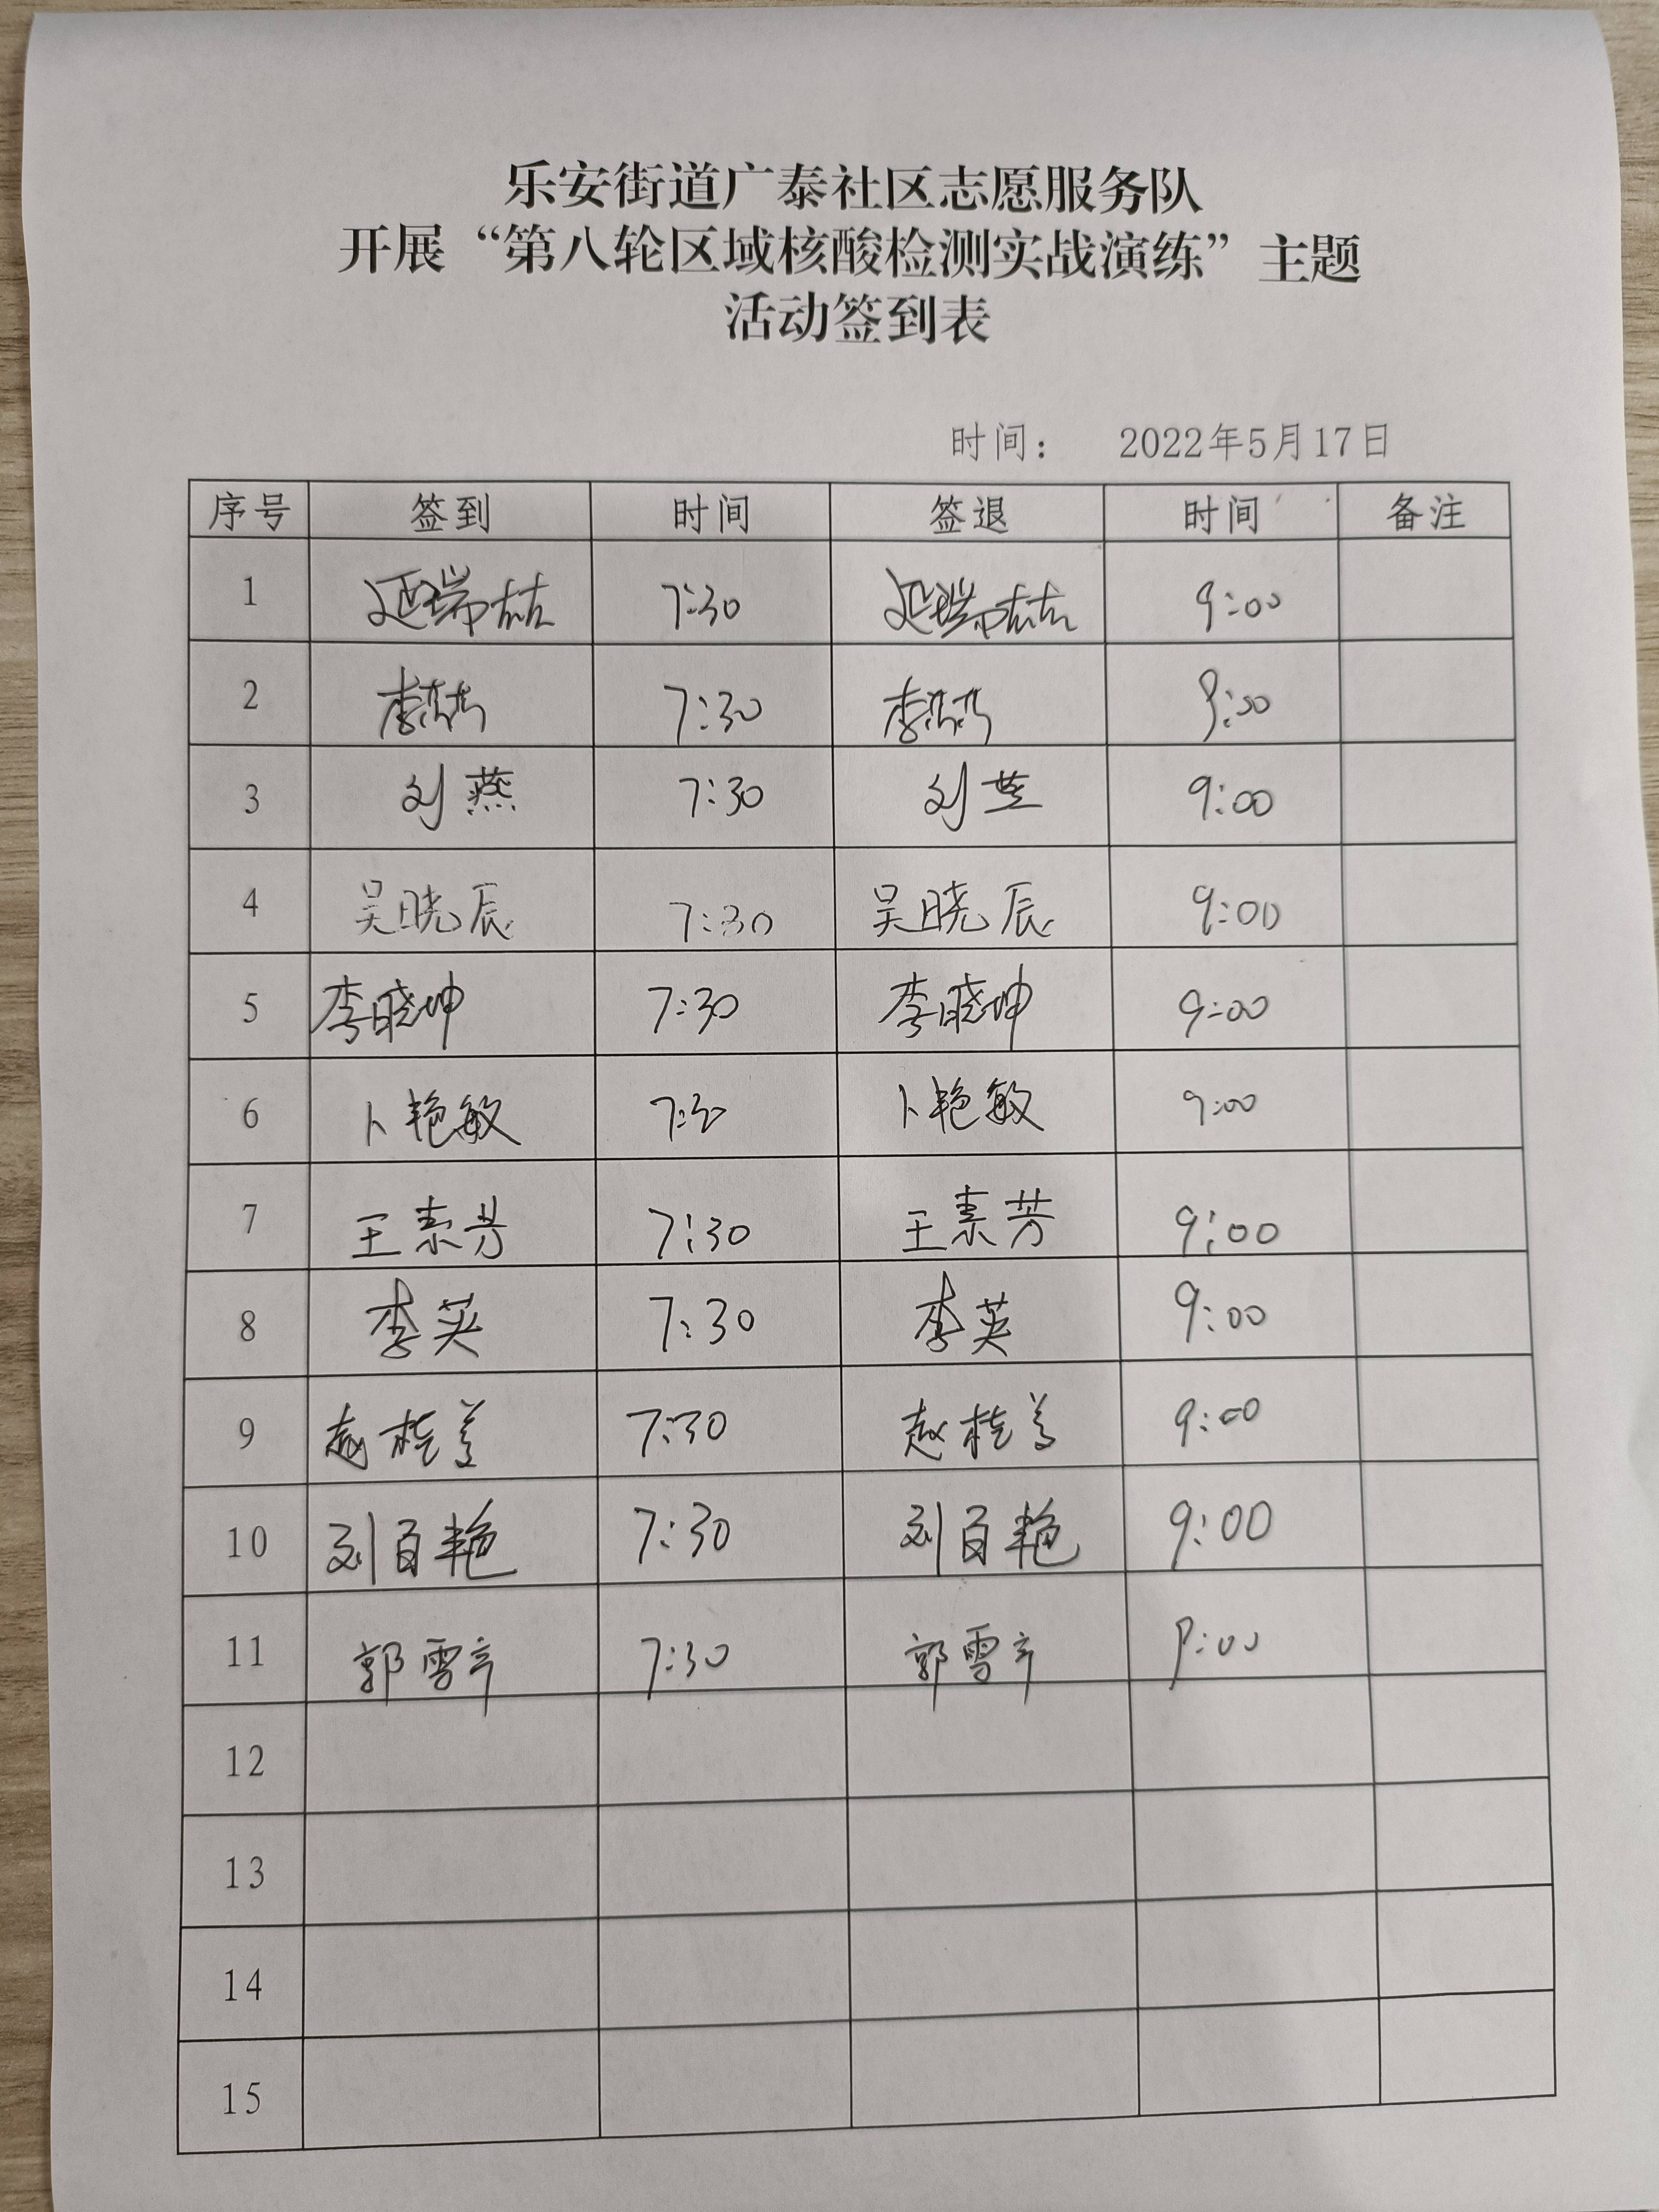 乐安街道广泰社区志愿服务队
开展“第八轮区域核酸检测实战演练”主题
活动签到表
时间： 2022年5月17日
序号 签到 时间 签退 时间 备注
1 7:30 9:00
2 李 7:30 9:00
3 刘燕 7:30 刘燕 9:00
4 吴晓辰 7:30 吴晓辰 9:00
5 李晓坤 7:30 李晓坤 9:00
6 卜艳敏 7:30 卜艳敏 9:00
7 王素芳 7:30 王素芳 9:00
8 李英 7:30 李英 9:00
9 赵桂 7:30 赵桂 9:00
10 刘百艳 7:30 刘百艳 9:00
11 郭雪 7:30 郭雪 9:00
12
13
14
15